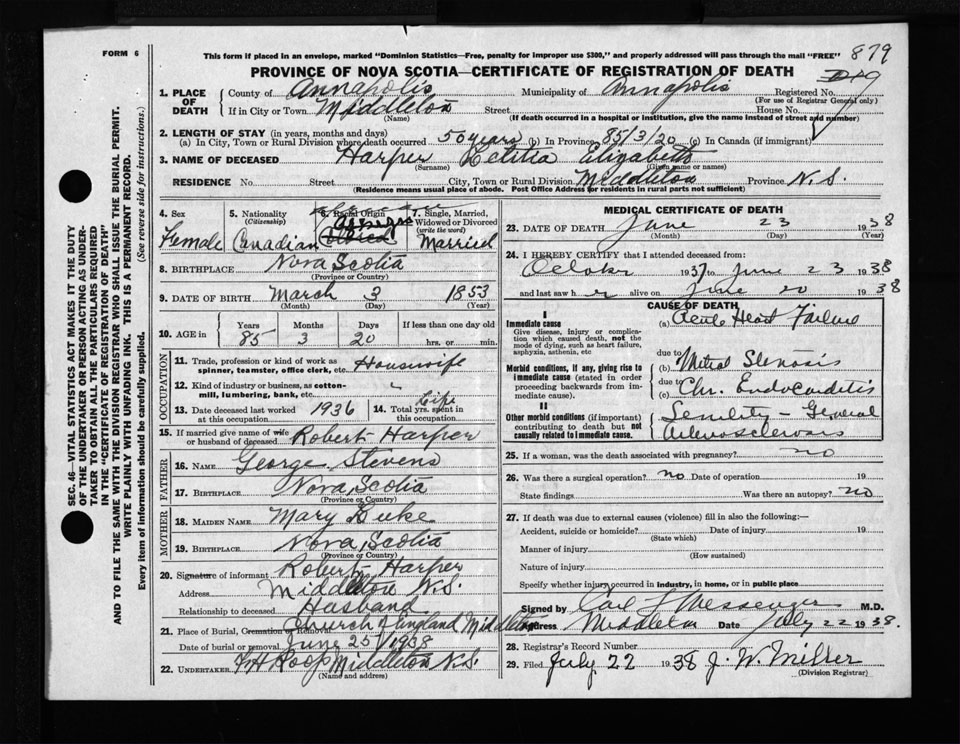 FORM 6
This form if placed in an envelope, marked "Dominion Statistics—Free, penalty for improper use $300," and properly addressed will pass through the mail "FREE" 879
PROVINCE OF NOVA SCOTIA—CERTIFICATE OF REGISTRATION OF DEATH
1. PLACE OF DEATH County of Annapolis Municipality of Annapolis Registered No.
(For use of Registrar General only)
If in City or Town Middleton Street House No.
(Name) (If death occurred in a hospital or institution, give the name instead of street and number)
2. LENGTH OF STAY (in years, months and days)
(a) In City, Town or Rural Division where death occurred 50 years (b) In Province 85/3/20 (c) In Canada (if immigrant)
3. NAME OF DECEASED Harper Letitia Elizabeth
(Surname) (Given name or names)
RESIDENCE No. Street City, Town or Rural Division Middleton Province N.S.
(Residence means usual place of abode. Post Office Address for residents in rural parts not sufficient)
4. Sex Female
5. Nationality (Citizenship) Canadian
6. Racial Origin
7. Single, Married, Widowed or Divorced (write the word) Married
8. BIRTHPLACE Nova Scotia
(Province or Country)
9. DATE OF BIRTH March 3 1853
(Month) (Day) (Year)
10. AGE in Years Months Days If less than one day old
85 3 20 hrs. or min.
OCCUPATION
11. Trade, profession or kind of work as spinner, teamster, office clerk, etc. Housewife
12. Kind of industry or business, as cotton-mill, lumbering, bank, etc. "
13. Date deceased last worked at this occupation 1936
14. Total yrs. spent in this occupation Life
15. If married give name of wife or husband of deceased Robert Harper
FATHER
16. NAME George Stevens
17. BIRTHPLACE Nova Scotia
(Province or Country)
MOTHER
18. MAIDEN NAME Mary
19. BIRTHPLACE Nova Scotia
(Province or Country)
20. Signature of informant Robert Harper
Address Middleton N.S.
Relationship to deceased Husband
21. Place of Burial, Cremation or Removal Church of England Middleton
Date of burial or removal June 25 1938
22. UNDERTAKER Middleton N.S.
(Name and address)
MEDICAL CERTIFICATE OF DEATH
23. DATE OF DEATH June 23 1938
(Month) (Day) (Year)
24. I HEREBY CERTIFY that I attended deceased from:
October 1937 to June 23 1938
and last saw her alive on June 20 1938
CAUSE OF DEATH
I
Immediate cause
Give disease, injury or complication which caused death, not the mode of dying, such as heart failure, asphyxia, asthenia, etc
(a) Acute Heart Failure
due to
Morbid conditions, if any, giving rise to immediate cause (stated in order proceeding backwards from immediate cause).
(b) Mitral Stenosis
due to
(c) Chr. Endocarditis
II
Other morbid conditions (if important) contributing to death but not causally related to immediate cause.
Senility – General
Arteriosclerosis
25. If a woman, was the death associated with pregnancy? no
26. Was there a surgical operation? no Date of operation 19
State findings Was there an autopsy? no
27. If death was due to external causes (violence) fill in also the following:—
Accident, suicide or homicide? Date of injury 19
(State which)
Manner of injury
(How sustained)
Nature of injury
Specify whether injury occurred in industry, in home, or in public place
Signed by Carl Messenger M.D.
Address Middleton Date July 22 1938.
28. Registrar's Record Number
29. Filed July 22 1938 J. W. Miller
(Division Registrar)
SEC. 46—VITAL STATISTICS ACT MAKES IT THE DUTY
OF THE UNDERTAKER OR PERSON ACTING AS UNDER-
TAKER TO OBTAIN ALL THE PARTICULARS REQUIRED
IN THE "CERTIFICATE OF REGISTRATION OF DEATH"
AND TO FILE THE SAME WITH THE DIVISION REGISTRAR WHO SHALL ISSUE THE BURIAL PERMIT.
WRITE PLAINLY WITH UNFADING INK. THIS IS A PERMANENT RECORD.
Every item of information should be carefully supplied. (See reverse side for instructions.)